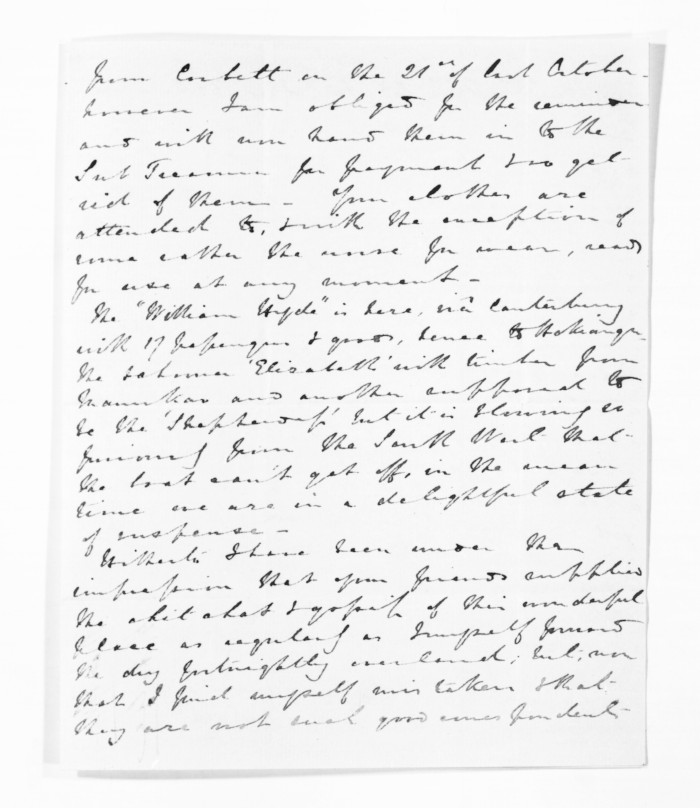 from Corbett on the 21st of last October -
however I am obliged for the reminder
and will now hand them in to the
Sub Treasurer for payment & so get
rid of them - Your clothes are
attended to, & with the exception of
some rather the worse for wear, ready
for use at any moment -
The "William Hyde" is here, via Canterbury
with 17 passengers & goods, hence to Hokianga
the schooner 'Elizabeth' with timber from
Manukau and another supposed to
be the 'Shepherdess' but it is blowing so
furiously from the South West that
the boat can't get off, in the mean
time we are in a delightful state
of suspense -
Hitherto I have been under the
impression that your friends supplied
the chit chat & gossip of this wonderful
place as regularly as I myself forward
the day fortnightly overland; but, now
that I find myself mistaken & that
they are not such good correspondents